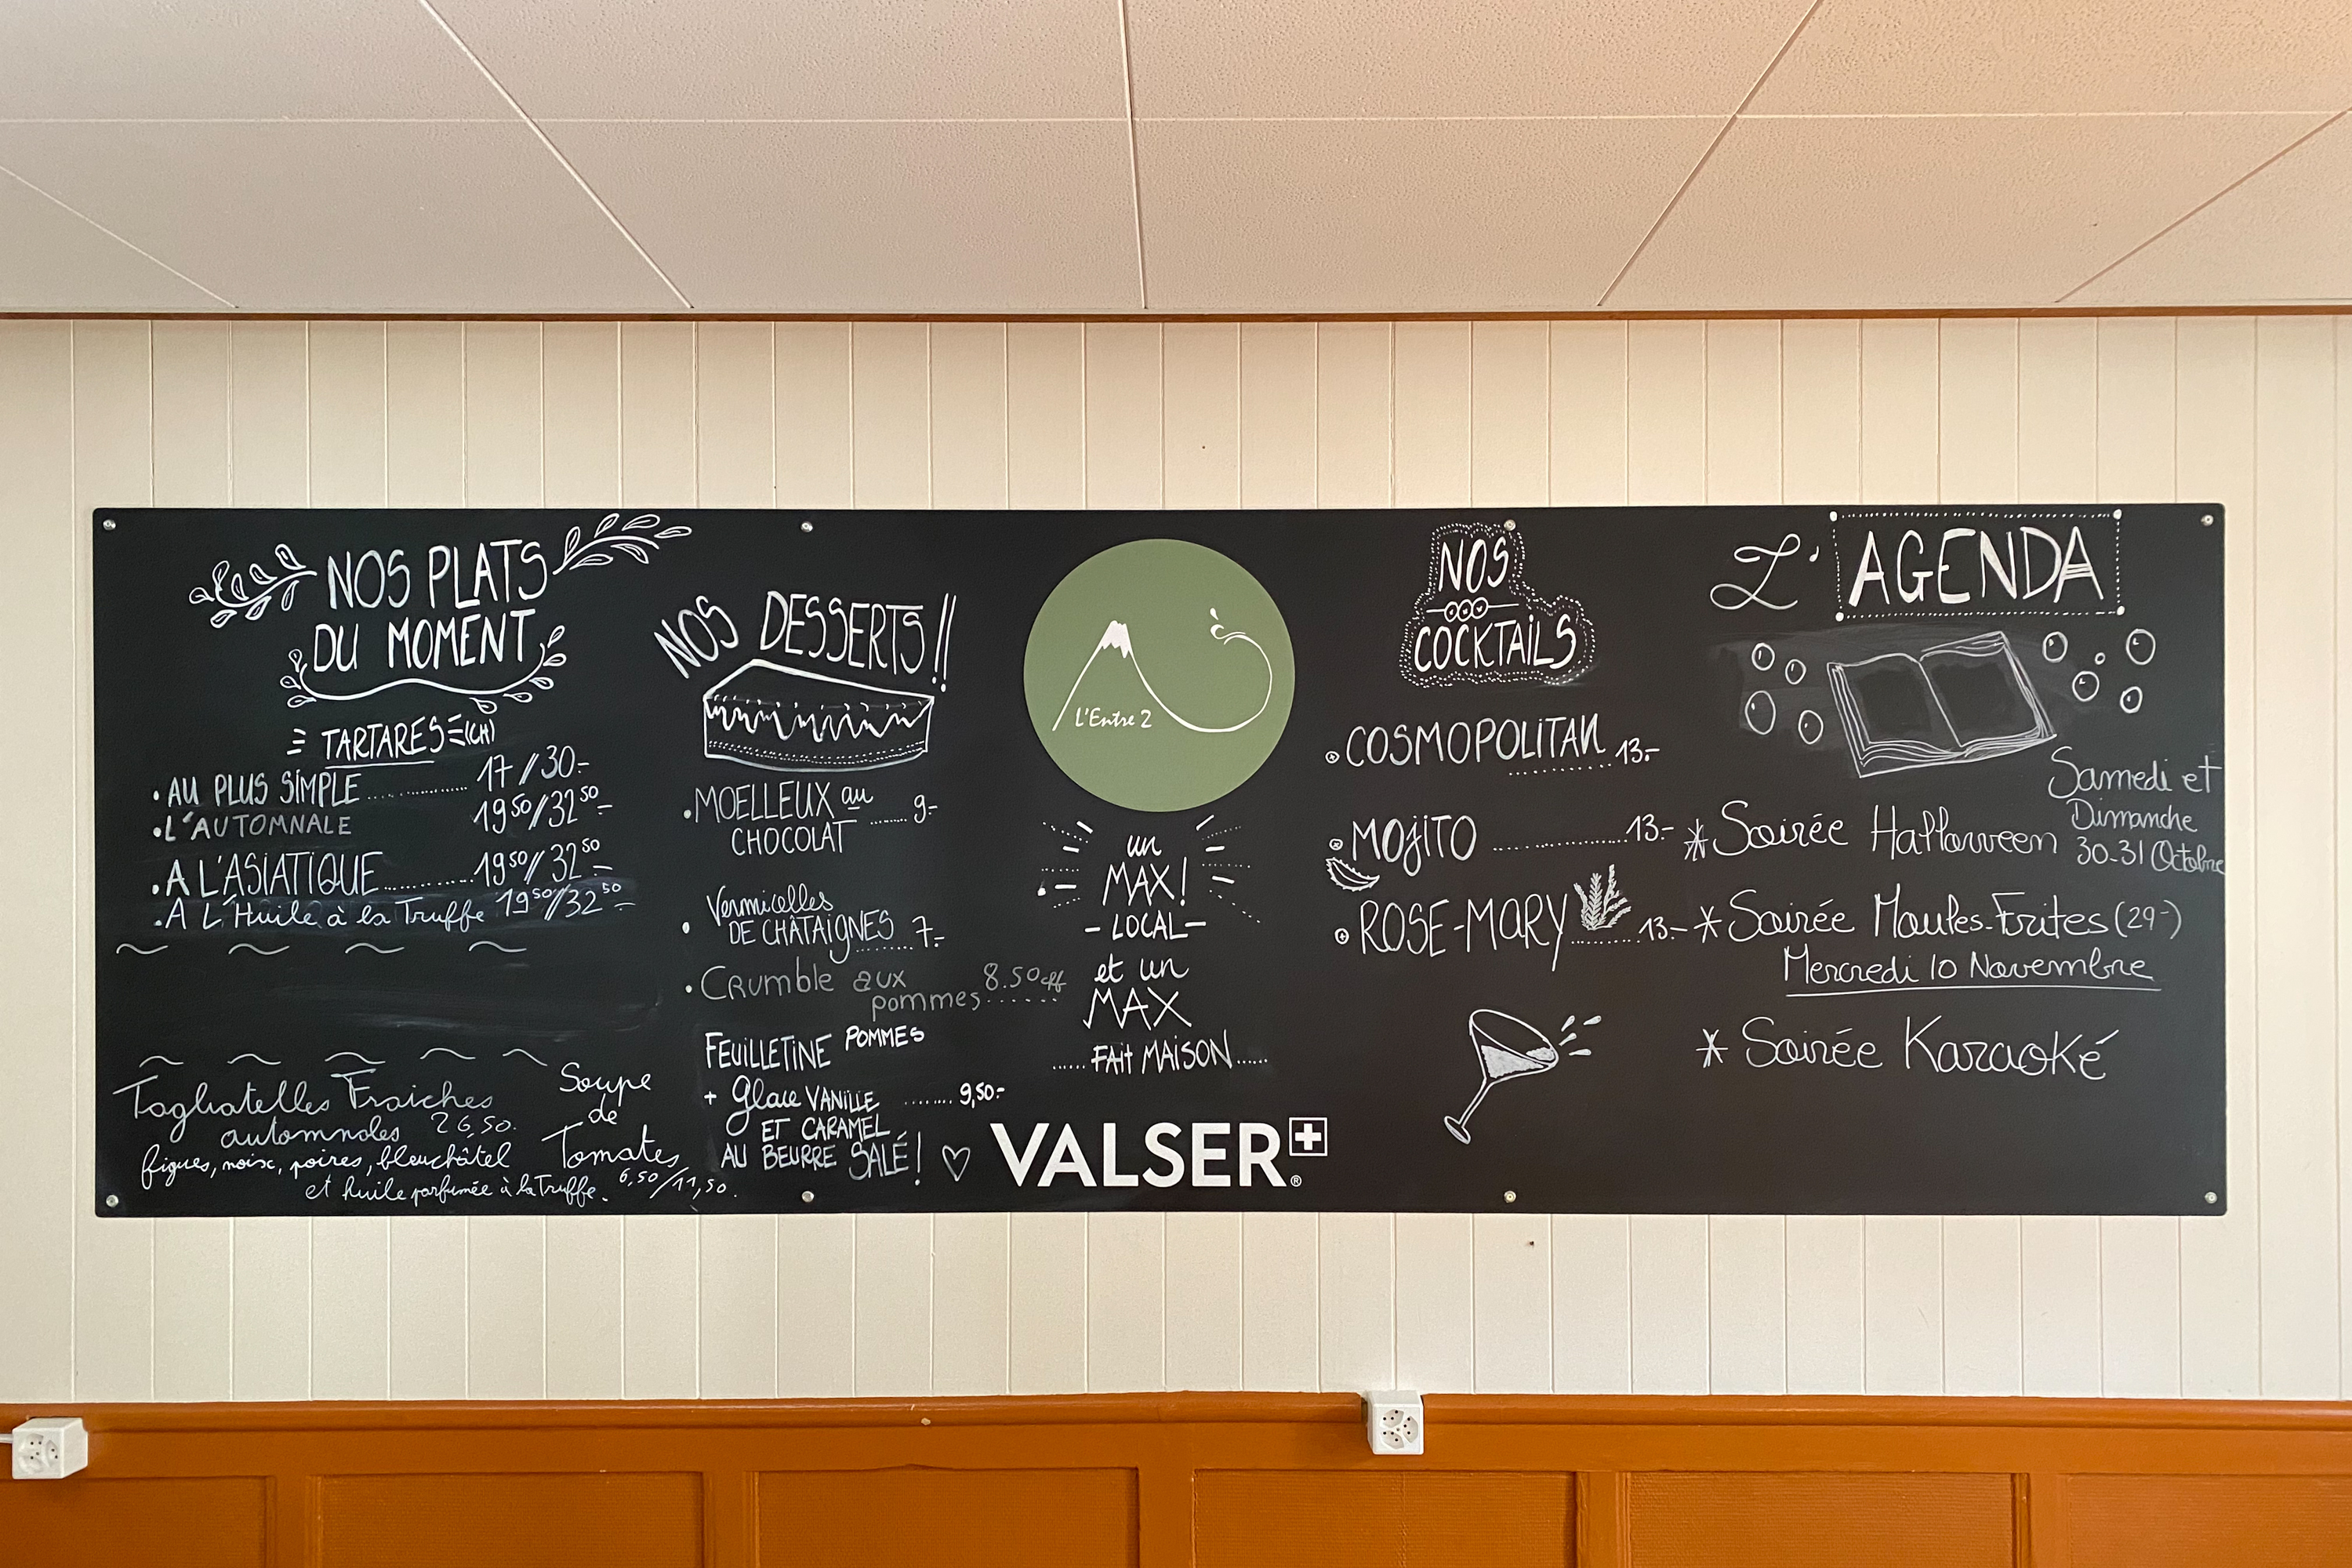 NOS PLATS
DU MOMENT
TARTARES (CH)
• AU PLUS SIMPLE ............... 17 // 30.-
• L'AUTOMNALE 19⁵⁰ // 32⁵⁰-
• A L'ASIATIQUE ............ 19⁵⁰ // 32⁵⁰-
• A L'Huile à la Truffe 19⁵⁰ // 32⁵⁰-
Tagliatelles Fraiches
automnales 26,50.
figues, noix, poires, bleuchâtel
et huile parfumée à la Truffe.
Soupe
de
Tomates
6,50/11,50.
NOS DESSERTS!!
• MOELLEUX au
CHOCOLAT ...... 9.-
• Vermicelles
DE CHÂTAIGNES ....... 7.-
• Crumble aux
pommes ....... 8.50 chf
FEUILLETINE POMMES
+ glace VANILLE ........ 9,50.-
ET CARAMEL
AU BEURRE SALÉ!
L'Entre 2
un
MAX!
- LOCAL -
et un
MAX
...... FAIT MAISON ......
VALSER ®
NOS
COCKTAILS
COSMOPOLITAN ............ 13.-
MOJITO .................. 13.-
ROSE-MARY ......... 13.-
L'AGENDA
* Soirée Halloween
Samedi et
Dimanche
30-31 Octobre
* Soirée Moules-Frites (29.-)
Mercredi 10 Novembre
* Soirée Karaoké